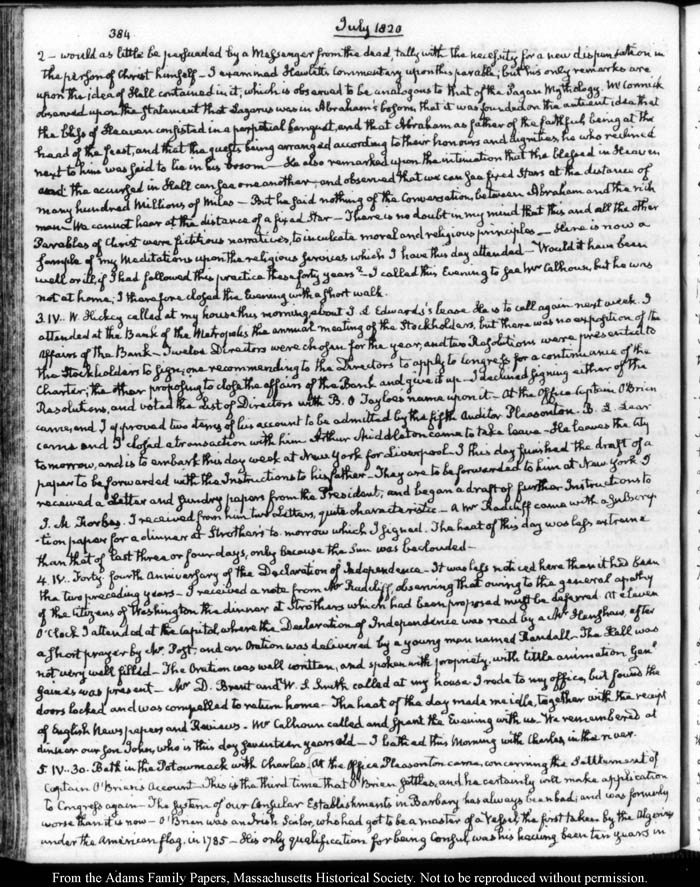 384
July 1820
2 – would as little be persuaded by a Messenger from the dead tally with the necessity for a new dispensation in
the person of Christ himself – I examined Hewlett's Commentary upon this parable; but his only remarks are
upon the idea of Hell contained in it, which is observed to be analogous to that of the Pagan Mythology. McCormick
observed upon the statement that Lazarus was in Abraham's bosom, that it was founded on the antient idea that
the bliss of Heaven consisted in a perpetual banquet, and that Abraham as father of the faithful, being at the
head of the feast, and that the guests being arranged according to their honours and dignities, he who reclined
next to him was said to lie in his bosom – He also remarked upon the intimation that the blessed in Heaven
and the accursed in Hell can see one another, and observed that we can see fixed Stars at the distance of
many hundred Millions of Miles – But he said nothing of the Conversation, between Abraham and the rich
man – We cannot hear at the distance of a fixed Star – There is no doubt in my mind that this and all the other
Parables of Christ were fictitious narratives, to inculcate moral and religious principles – Here is now a
sample of my Meditations upon the religious services which I have this day attended – Would it have been
well or ill, if I had followed this practice these forty years? – I called this Evening to see Mr Calhoun, but he was
not at home; I therefore closed the Evening with a short walk.
3. IV.. W. Hickey called at my house this morning about J. L Edwards's lease. He is to call again next week. I
attended at the Bank of the Metropolis the annual meeting of the Stockholders, but there was no exposition of the
Affairs of the Bank – Twelve Directors were chosen for the year, and two Resolutions were presented to
the Stockholders to sign; one recommending to the Directors to apply to Congress for a continuance of the
Charter; the other proposing to close the affairs of the Bank and give it up – I declined signing either of the
Resolutions, and voted the List of Directors with B. O Tayloe's name upon it – At the Office Captain O'Brien
came, and I approved two items of his account to be admitted by the fifth Auditor Pleasonton. B. L. Lear
came and I closed a transaction with him. Arthur Middleton came to take leave – He leaves the City
tomorrow, and is to embark this day week at New York for Liverpool – I this day finished the draft of a
paper to be forwarded with the Instructions to his father – They are to be forwarded to him at New York. I
received a Letter and sundry papers from the President; and began a draft of further Instructions to
J. M. Forbes. I received from him two Letters, quite characteristic – A Mr Radcliff came with a subscrip-
-tion paper for a dinner at Strother's to-morrow which I signed. The heat of this day was less extreme
than that of last three or four days, only because the Sun was beclouded –
4. IV.. Forty fourth Anniversary of the Declaration of Independence – It was less noticed here than it had been
the two preceding years – I received a note from Mr Radcliff, observing that owing to the general apathy
of the Citizens of Washington the dinner at Strothers which had been proposed must be deferred. At eleven
O'Clock I attended at the Capitol, where the Declaration of Independence was read by a Mr Henshaw, after
a short prayer by Mr Post; and an Oration was delivered by a young man named Randall. The Hall was
not very well filled – The Oration was well written, and spoken with propriety, with little animation. Genl
Gaines was present – Mr D. Brent and W. S. Smith called at my house. I rode to my Office, but found the
doors locked and was compelled to return home – The heat of the day made me idle, together with the receipt
of English Newspapers and Reviews – Mr Calhoun called and spent the Evening with us. We remembered at
dinner our Son John, who is this day seventeen years old – I bathed this Morning with Charles, in the river.
5. IV..30. Bath in the Potowmack with Charles. At the Office Pleasonton came, concerning the Settlement of
Captain O'Brien's Account – This is the third time that O'Brien settles, and he certainly will make application
to Congress again – The System of our Consular Establishments in Barbary has always been bad; and was formerly
worse than it is now – O'Brien was an Irish Sailor, who had got to be a master of a Vessel, the first taken by the Algerines
under the American flag, in 1785 – His only qualification for being Consul, was his having been ten years in
From the Adams Family Papers, Massachusetts Historical Society. Not to be reproduced without permission.